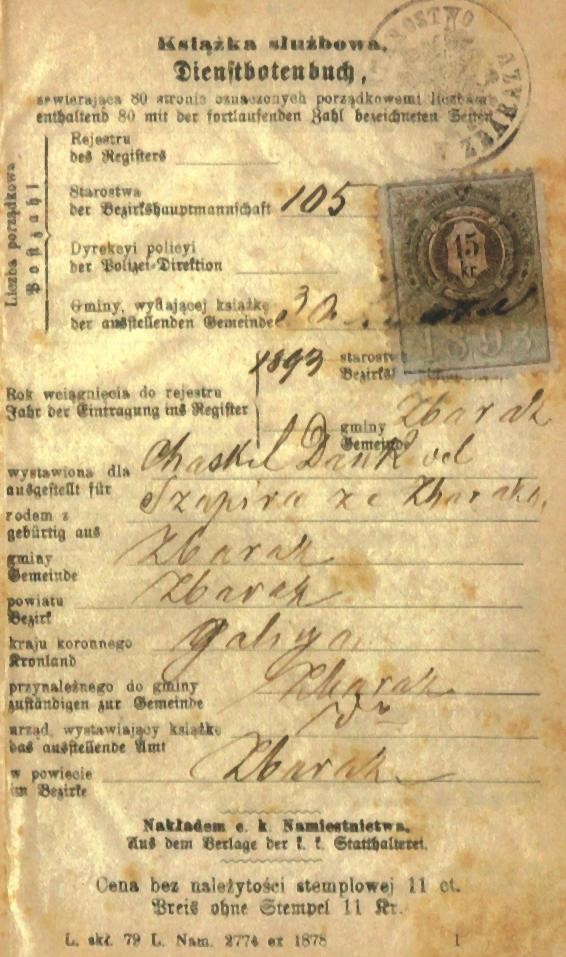 STAROSTWO ZBARAŻ
Książka służbowa,
Dienstbotenbuch,
zawierająca 80 stronic oznaczonych porządkowemi liczbami
enthaltend 80 mit der fortlaufenden Zahl bezeichneten Seiten
Liczba porządkowa
Postzahl
Rejestru
des Registers
Starostwa
der Bezirkshauptmannschaft 105
Dyrekcyi policyi
der Polizei-Direktion
Gminy, wydającej książkę
der ausstellenden Gemeinde
15
kr.
1893
1893 starostwo
Bezirks
Rok wciągnięcia do rejestru
Jahr der Eintragung ins Register
gminy Zbaraż
Gemeinde
wystawiona dla Chaskel Dank vel
ausgestellt für
rodem z Szapira ze Zbaraża
gebürtig aus
gminy Zbaraż
Gemeinde
powiatu Zbaraż
Bezirk
kraju koronnego Galicya
Kronland
przynależnego do gminy Zbaraż
zuständigen zur Gemeinde
urząd, wystawiający książkę
das ausstellende Amt
w powiecie Zbaraż
im Bezirke
Nakładem c. k. Namiestnictwa.
Aus dem Verlage der k. k. Statthalterei.
Cena bez należytości stemplowej 11 ct.
Preis ohne Stempel 11 Kr.
L. skł. 79 L. Nam. 2774 ex 1878 1